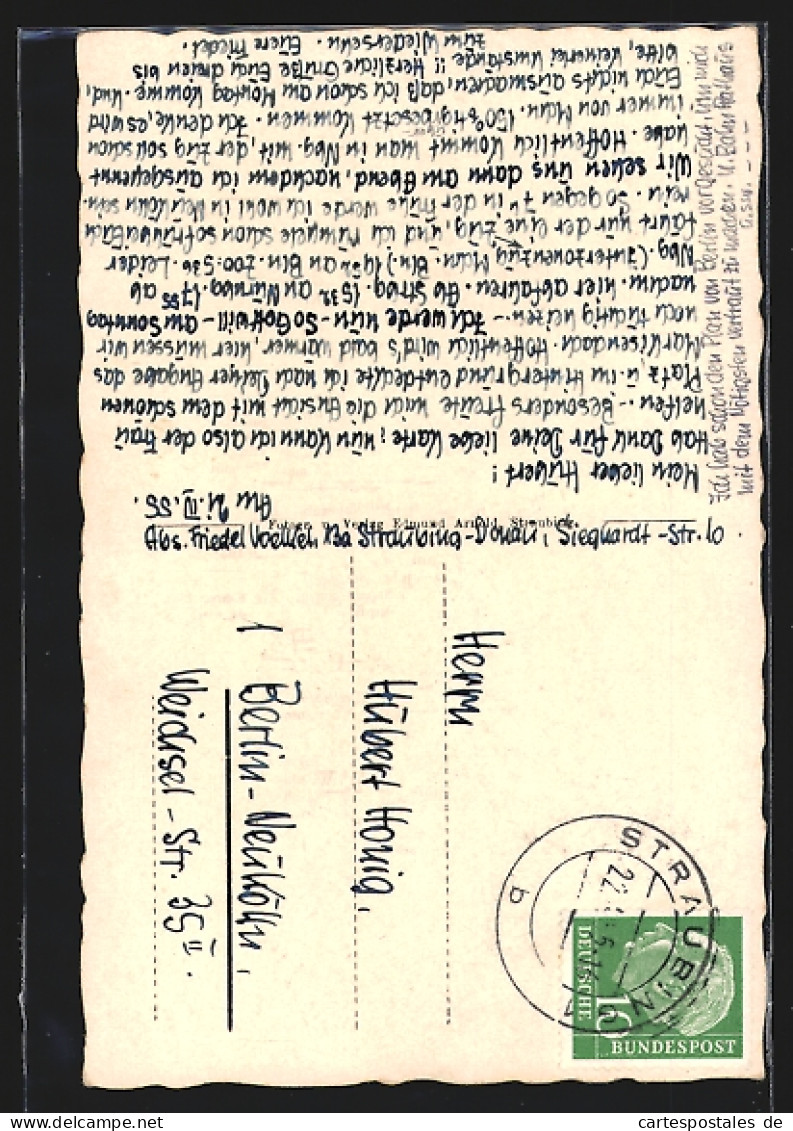 Abs. Friedel Voelkel, 13a Straubing-Donau, Sieghardt-Str. 10
Fotogr. u. Verlag Edmund Arnold, Straubing.
Am 21. IV. 55.
Mein lieber Hubert!
Hab Dank für Deine liebe Karte; nun kann ich also der Frau
helfen. – Besonders freute mich die Ansicht mit dem schönen
Platz u. im Hintergrund entdeckte ich nach Deiner Angabe das
Markisendach. Hoffentlich wird's bald warmer, hier müssen wir
noch tüchtig heizen. – Ich werde nun – So Gott will – am Sonntag
nachm. hier abfahren. Ab Strbg. 15 32 an Nürnbg. 17 55 ab
Nbg. (Interzonenzug Mchn. - Bln.) 19 52 an Bln. Zoo: 5 36. Leider
fährt nur der eine Zug, und ich rumple schon so früh bei Euch
rein. So gegen 7 h in der Frühe werde ich wohl in Neukölln sein.
Wir sehen uns dann am Abend, nachdem ich ausgepennt
habe. Hoffentlich kommt man in Nbg. mit, der Zug soll schon
immer von Mchn. 150%ig besetzt kommen. Ich denke, es wird
Euch nichts ausmachen, daß ich schon am Montag komme. Und,
bitte, keinerlei Umstände!! Herzliche Grüße Euch dreien bis
zum Wiedersehn. Eure Friedel.
Ich hab schon den Plan von Berlin vorgesucht, um mich
mit dem Nötigsten vertraut zu machen. U. Bahn Rathaus
u.s.w. – – –
Herrn
Hubert Honig,
1 Berlin-Neukölln,
Weichsel-Str. 35 II.
STRAUBING 1
22.
b
DEUTSCHE
10
BUNDESPOST
cartespostales de